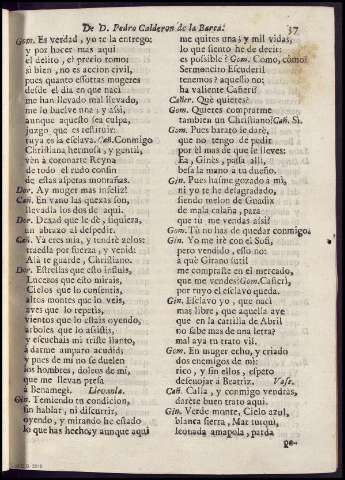 De D. Pedro Calderon de la Barca.
37
Gom. Es verdad, yo te la entrego;
y por hacer mas aqui
el delito, el precio tomo;
si bien, no es accion civil,
pues quanto essotras mugeres
desde el dia en que naci
me han llevado mal llevado,
me lo buelve una; y assi,
aunque aquesto sea culpa,
juzgo que es restituir:
tuya es la esclava. Cañ. Conmigo
Christiana hermosa, y gentil,
ven à coronarte Reyna
de todo el rudo confin
de estas asperas montañas.
Dor. Ay muger mas infeliz!
Cañ. En vano las quexas son,
llevadla los dos de aqui.
Dor. Dexad que le dè, siquiera,
un abrazo al despedir.
Cañ. Ya eres mia, y tendrè zelos:
traedla por fuerza, y venid:
Alà te guarde, Christiano.
Dor. Estrellas que esto influis,
Luceros que esto mirais,
Cielos que lo consentis,
altos montes que lo veis,
aves que lo repetis,
vientos que lo estais oyendo,
arboles que lo assistis,
y escuchais mi triste llanto,
à darme amparo acudid;
y pues de mi no se duelen
los hombres, doleos de mi,
que me llevan presa
à Benamegi. Llevanla.
Gin. Temiendo tu condicion,
sin hablar, ni discurrir,
oyendo, y mirando he estado
lo que has hecho, y aunque aqui
me quites una, y mil vidas,
lo que siento he de decir:
es possible? Gom. Como, còmo?
Sermoncito Escuderil
tenemos? aquesso no:
ha valiente Cañeri?
Cañer. Què quieres?
Gom. Quieres comprarme
tambien un Christiano? Cañ. Sì.
Gom. Pues barato le darè,
que no tengo de pedir
por èl mas de que le lleves:
Ea, Ginès, passa alli,
besa la mano a tu dueño.
Gin. Pues hasme gozado à mi,
ni yo te he desagradado,
siendo melon de Guadix
de mala calaña, para
que tu me vendas assi?
Gom. Tù no has de quedar conmigo.
Gin. Yo me irè con el Sofi,
pero vendido, esso no:
à què Gitano sutil
me compraste en el mercado,
que me vendes? Gom. Cañeri,
por tuyo el esclavo queda.
Gin. Esclavo yo, que naci
mas libre, que aquella ave
que en la cartilla de Abril
no sabe mas de una letra?
mal aya tu trato vil.
Gom. En muger echo, y criado
dos enemigos de mi:
rico, y sin ellos, espero
desenojar à Beatriz. Vase.
Cañ. Calla, y conmigo vendràs,
darète buen trato aqui.
Gin. Verde monte, Cielo azul,
blanca sierra, Mar turqui,
leonada amapola, parda
pe-